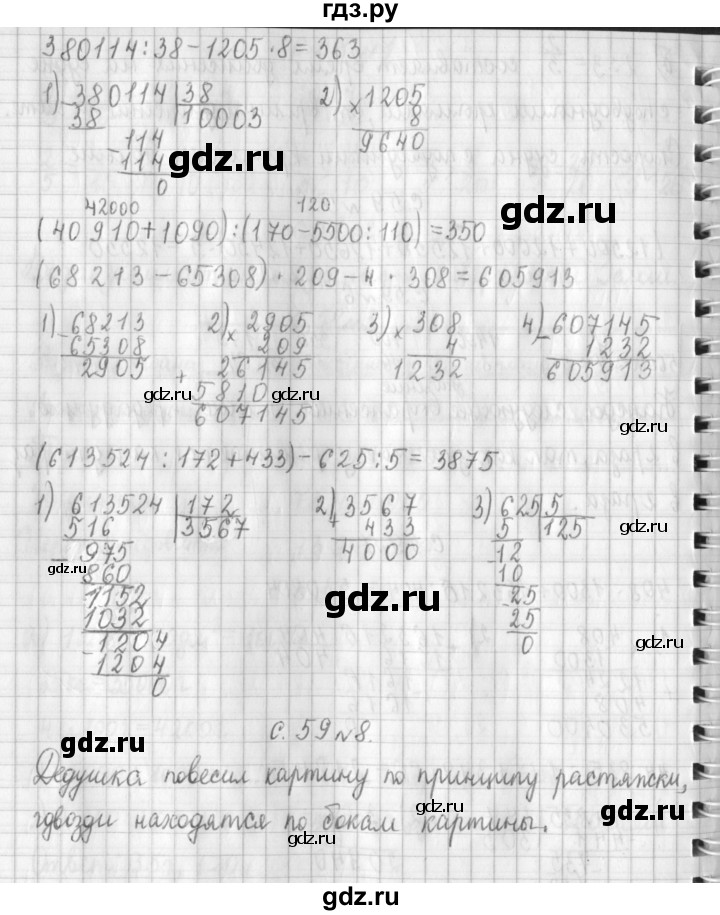 гдз.ру
380114:38-1205·8=363
1) 380114 38
38 10003
114
114
0
2) 1205
× 8
9640
gdz.ru
gdz.ru
42000 120
(40910+1090):(170-5500:110)=350
(68213-65308)·209-4·308=605913
1) 68213
- 65308
2905
2) 2905
× 209
26145
+ 5810
607145
3) 308
× 4
1232
4) 607145
- 1232
605913
gdz.ru
gdz.ru
gdz.ru
(613524:172+433)-625:5=3875
1) 613524 172
516 3567
975
860
1152
1032
1204
1204
0
2) 3567
+ 433
4000
3) 625 5
5 125
12
10
25
25
0
gdz.ru
gdz.ru
gdz.ru
gdz.ru
с. 59 №8.
gdz.ru
Дедушка повесил картину по принципу растяжки,
gdz.ru
gdz.ru
гдвозди находятся по бокам картины.
gdz.ru
gdz.ru